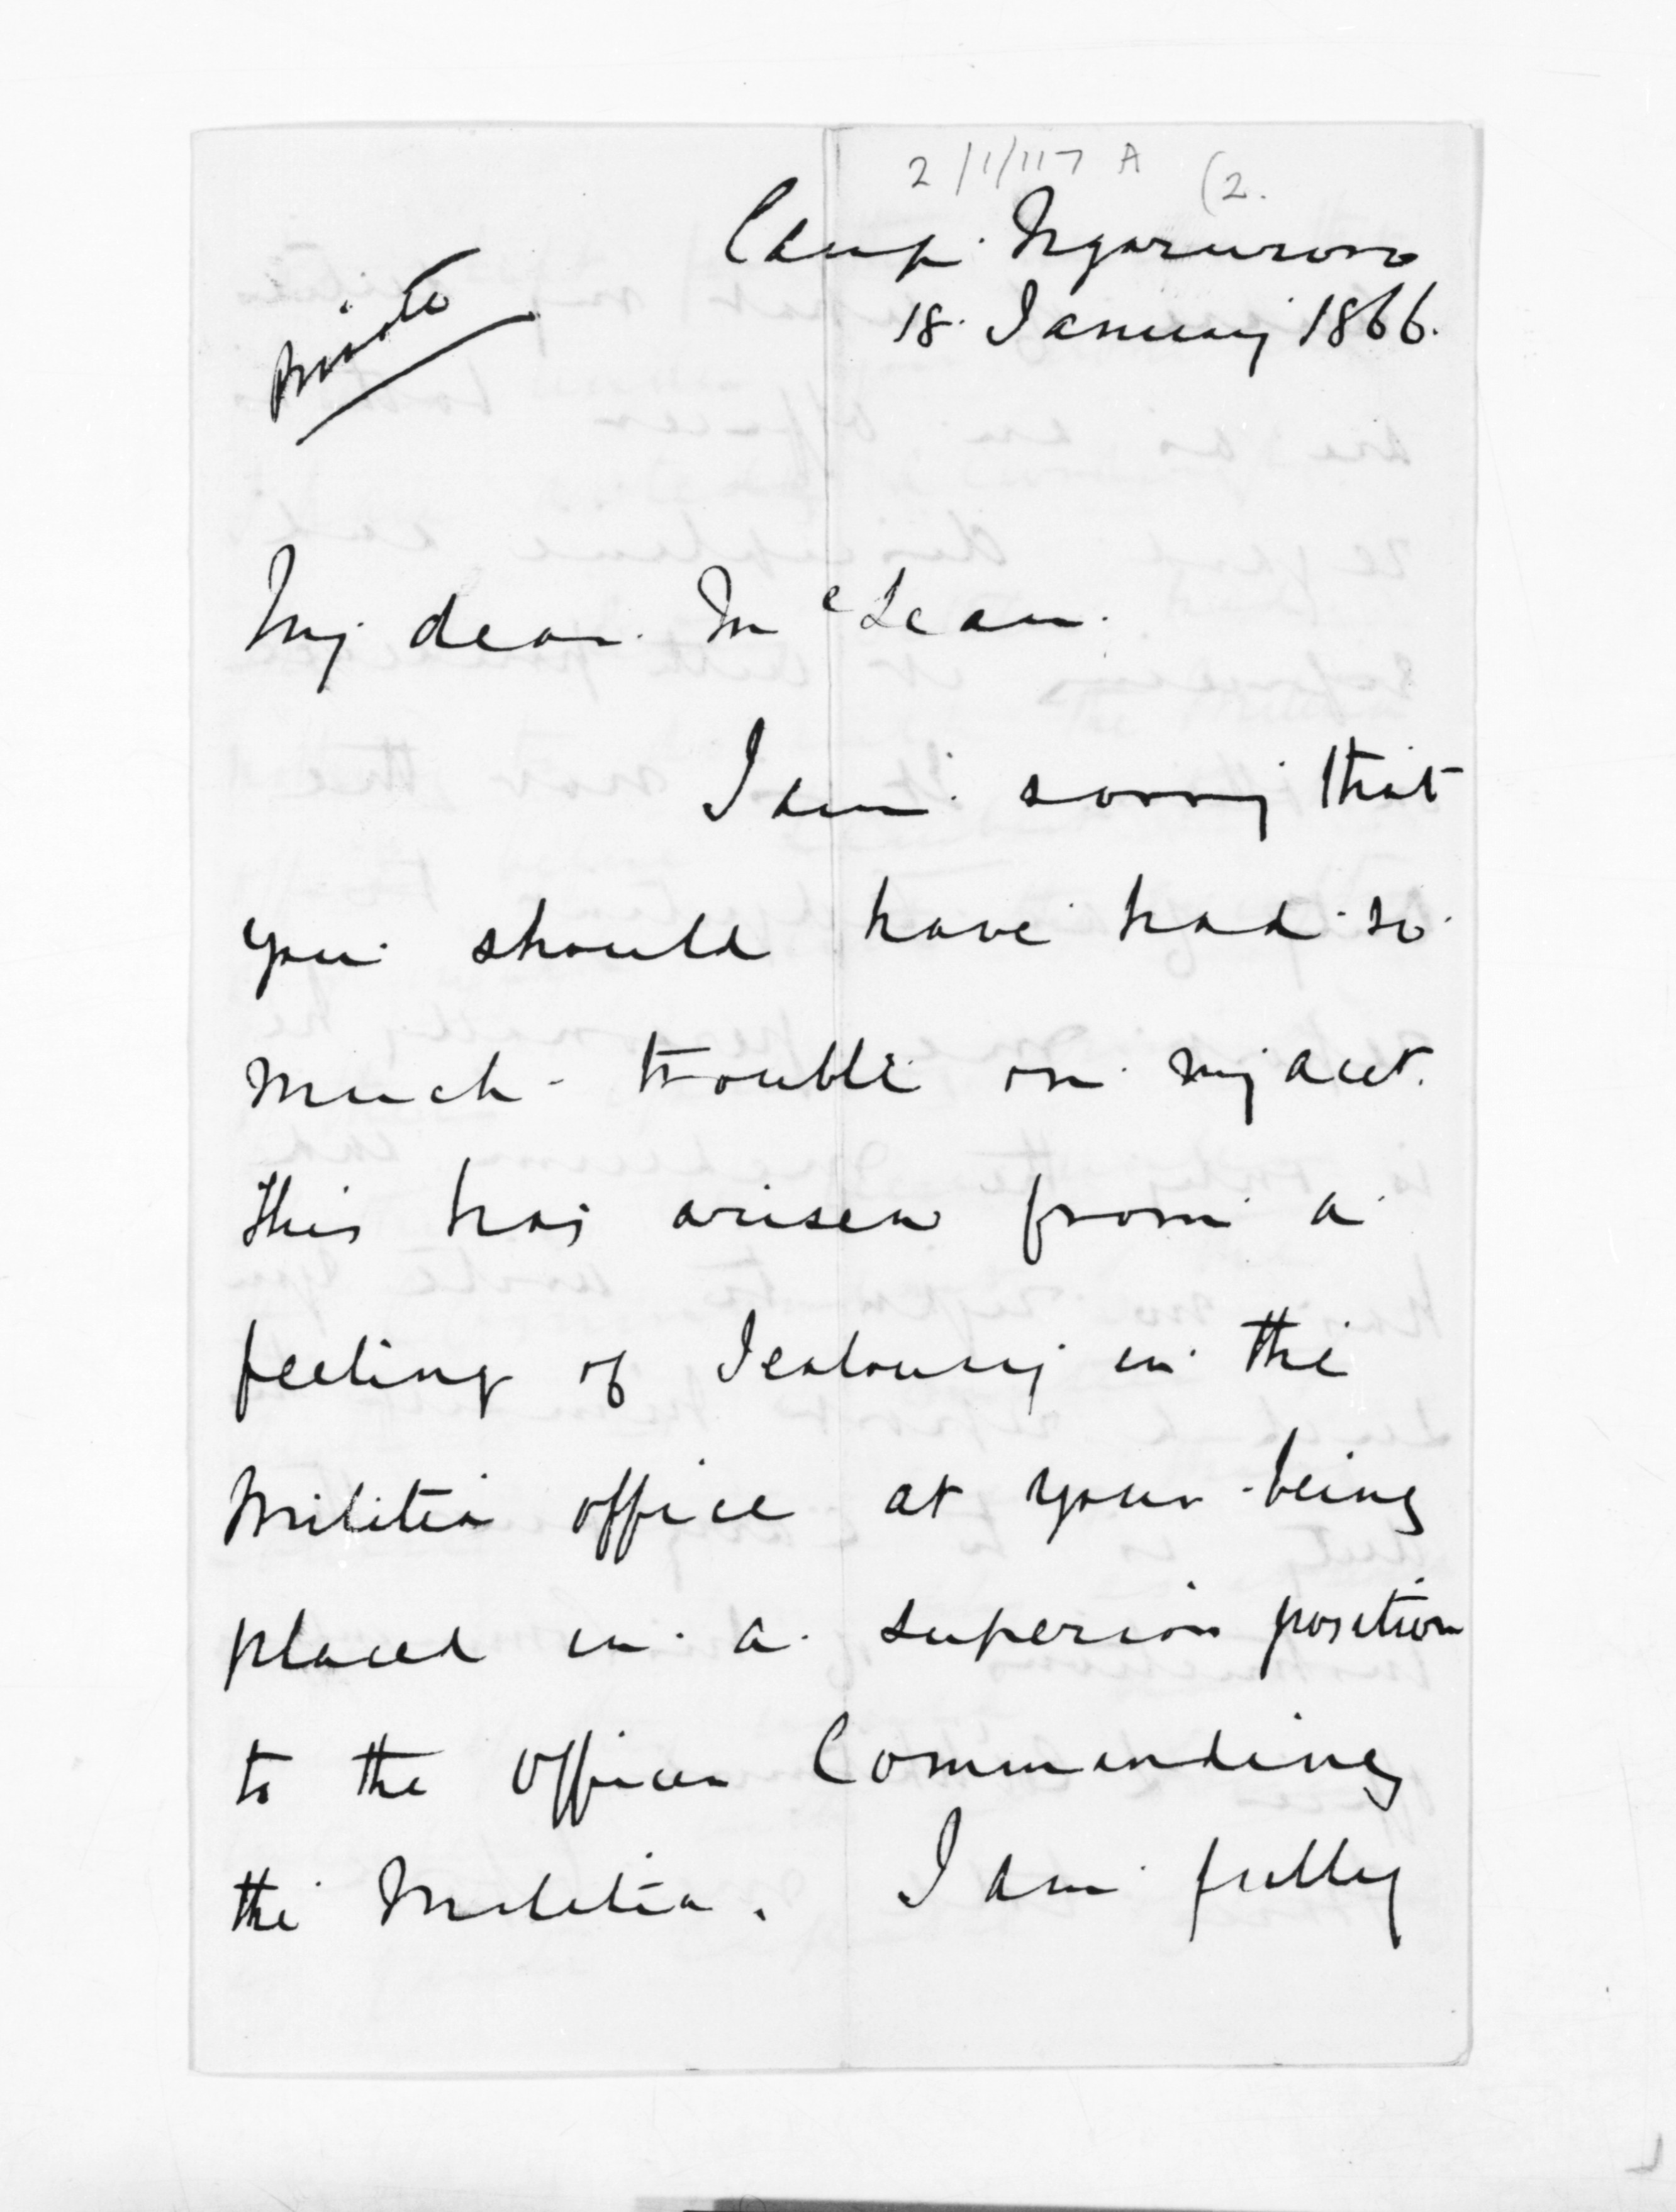 2/1/117 A (2.
Camp. Ngaruroro
18. January 1866.
Private
My dear. McLean.
I am. sorry that
you should have had so
much trouble on my acct.
this has arisen from a
feeling of Jealousy in the
Militia office at your being
placed in a superior position
to the Officer Commanding
the Militia. I am fully